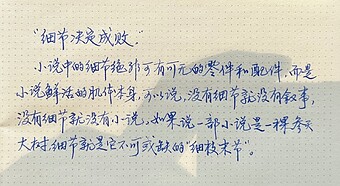 “细节决定成败。”
小说中的细节绝非可有可无的零件和配件，而是
小说鲜活的肌体本身，可以说，没有细节就没有叙事，
没有细节就没有小说，如果说一部小说是一棵参天
大树，细节就是它不可或缺的“细枝末节”。